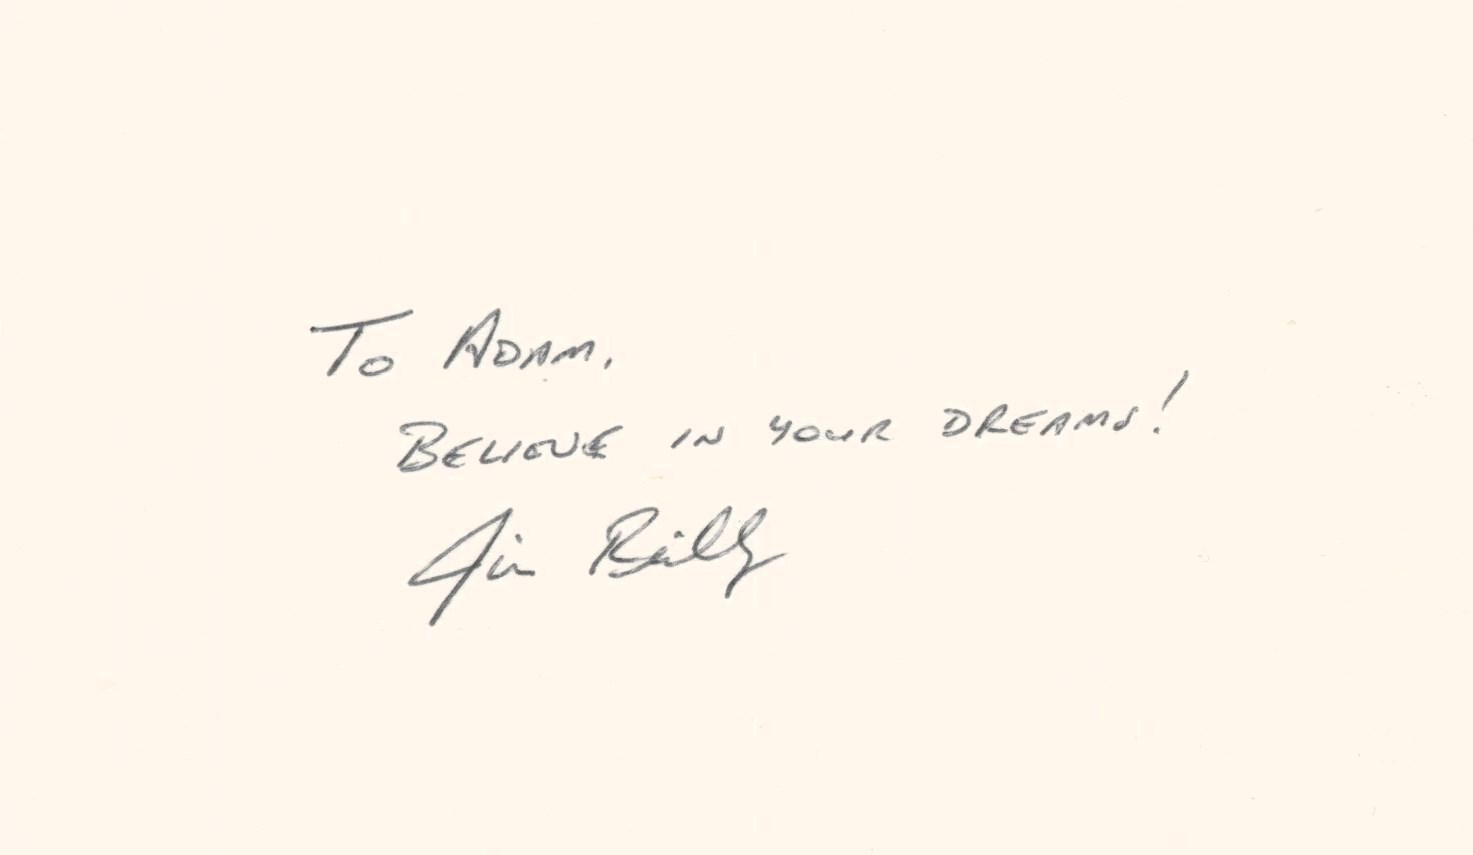 To ADAM,
BELIEVE IN YOUR DREAMS!
Jim Reilly